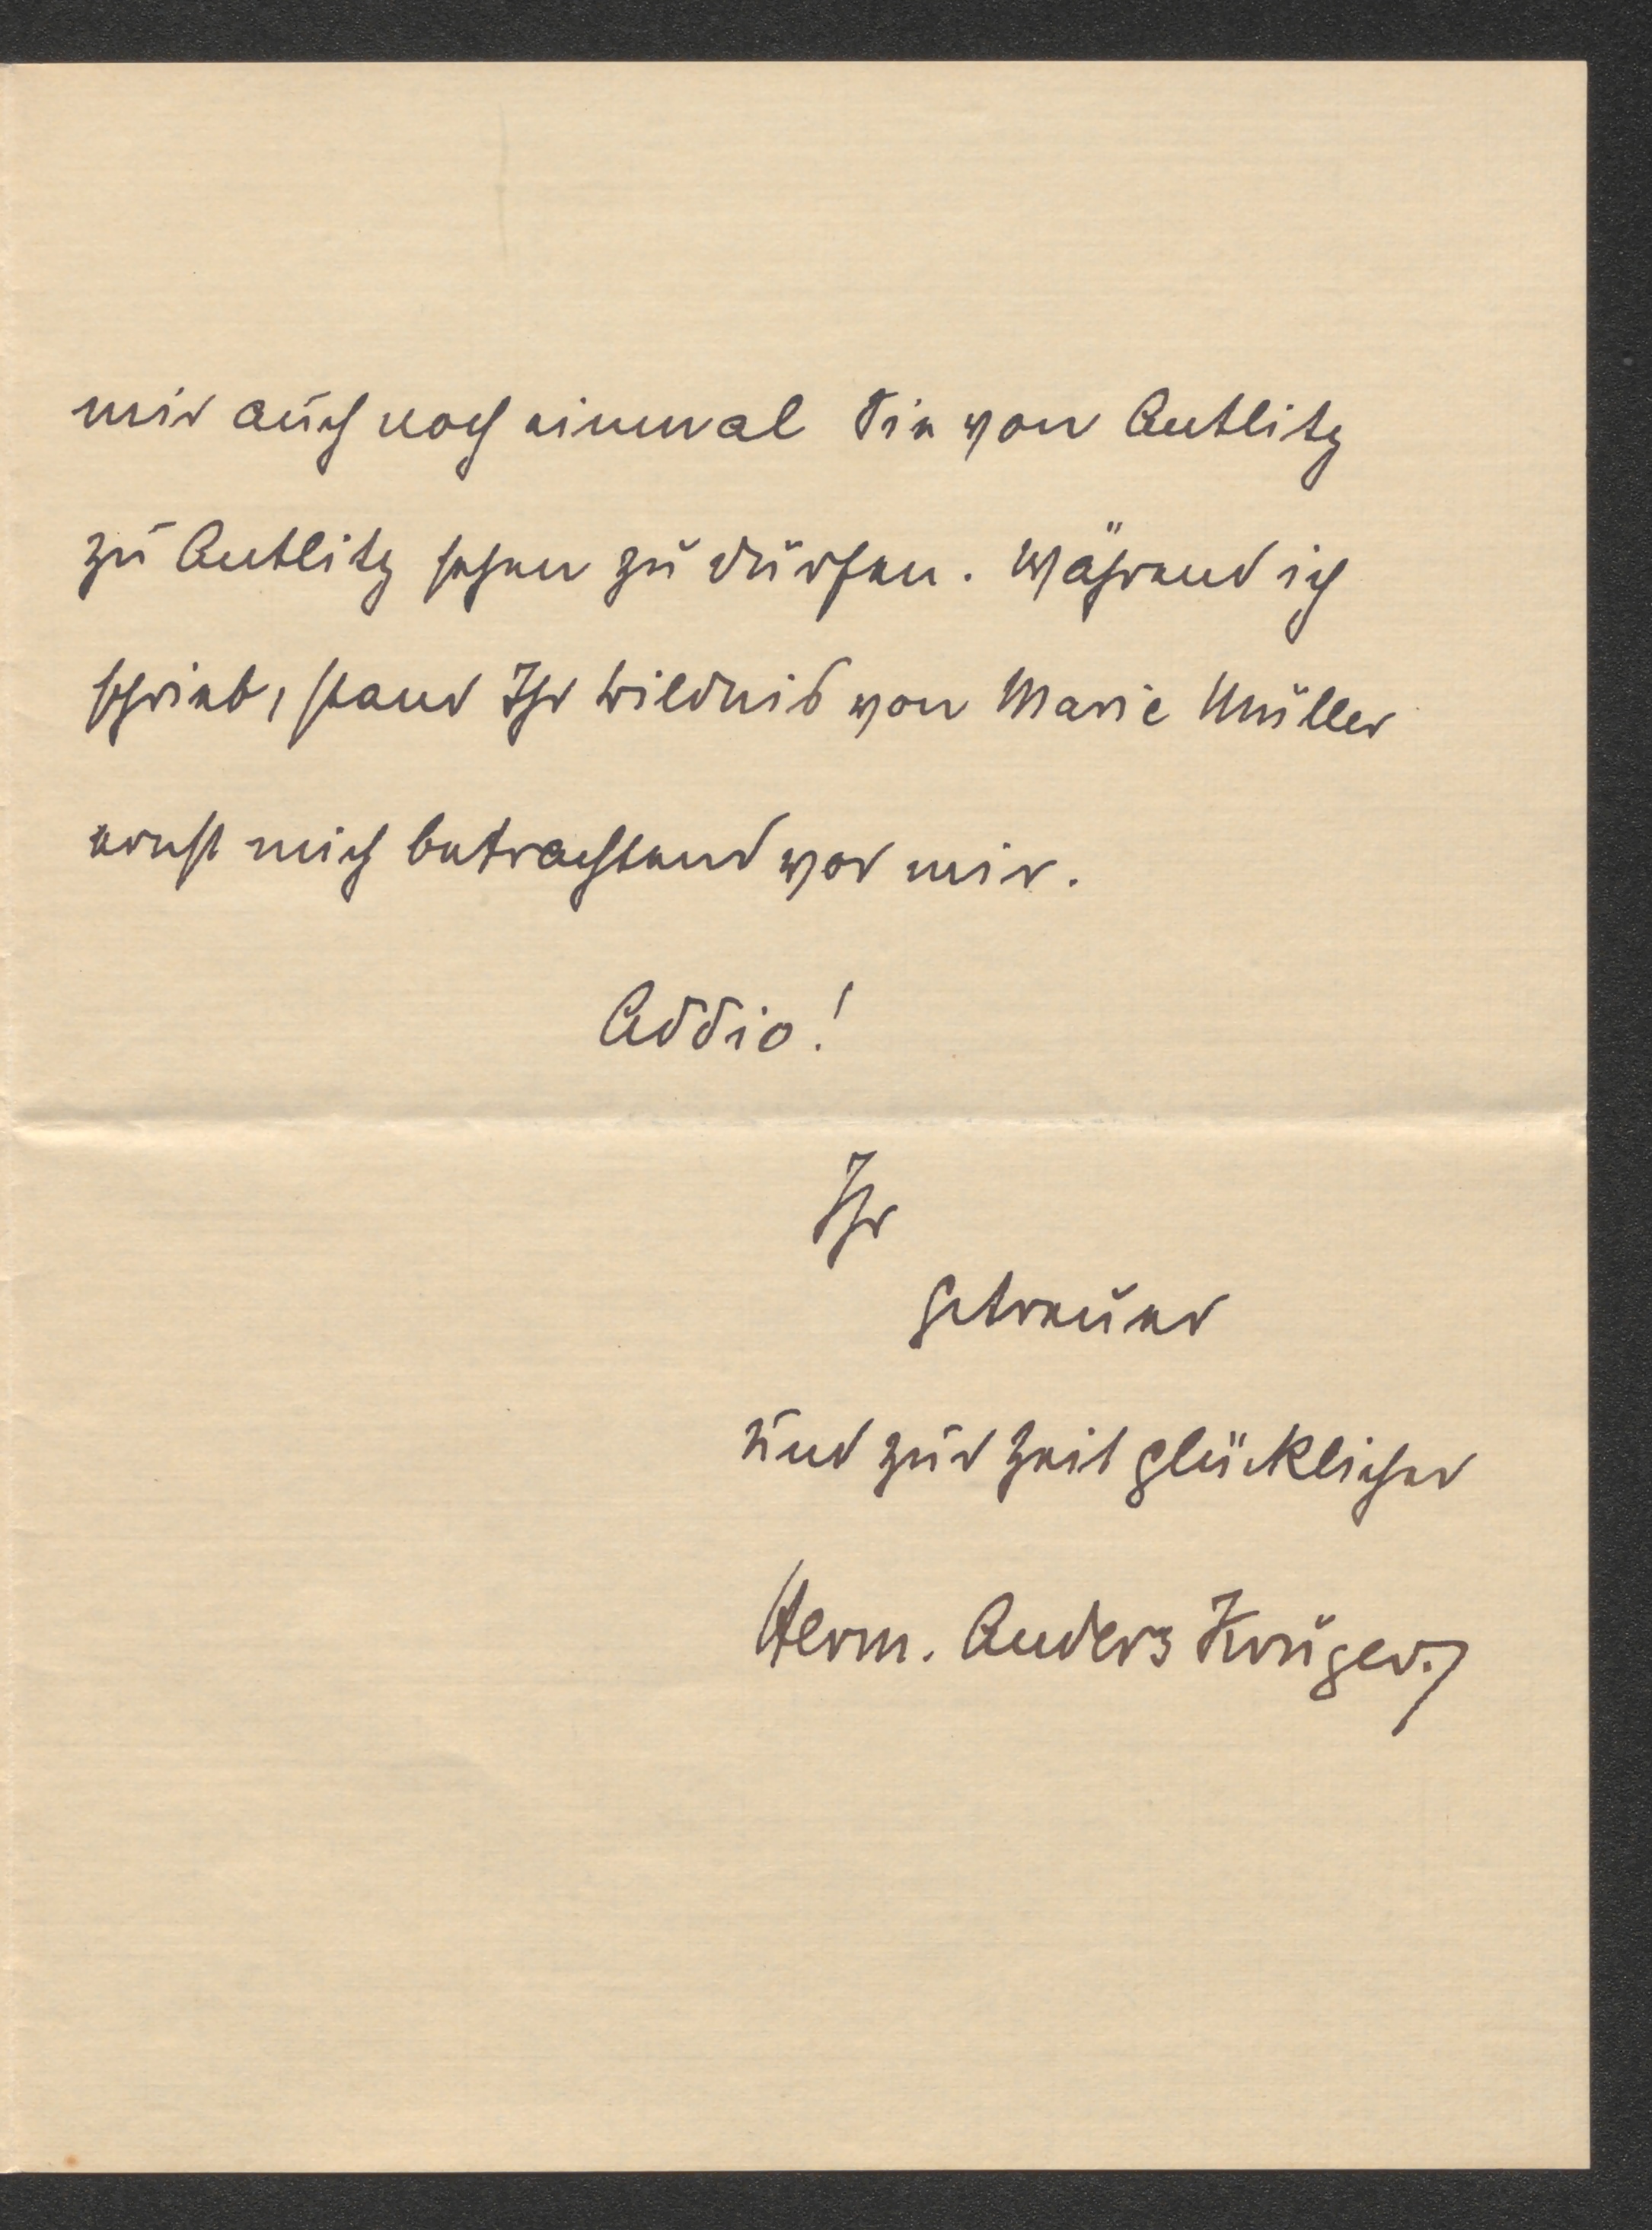 mir auch noch einmal Sie von Antlitz
zu Antlitz sehen zu dürfen. Während ich
schrieb, stand Ihr Bildnis von Marie Müller
ernst mich betrachtend vor mir.
Addio!
Ihr
getreuer
und zur Zeit glücklicher
Herm. Anders Krüger.